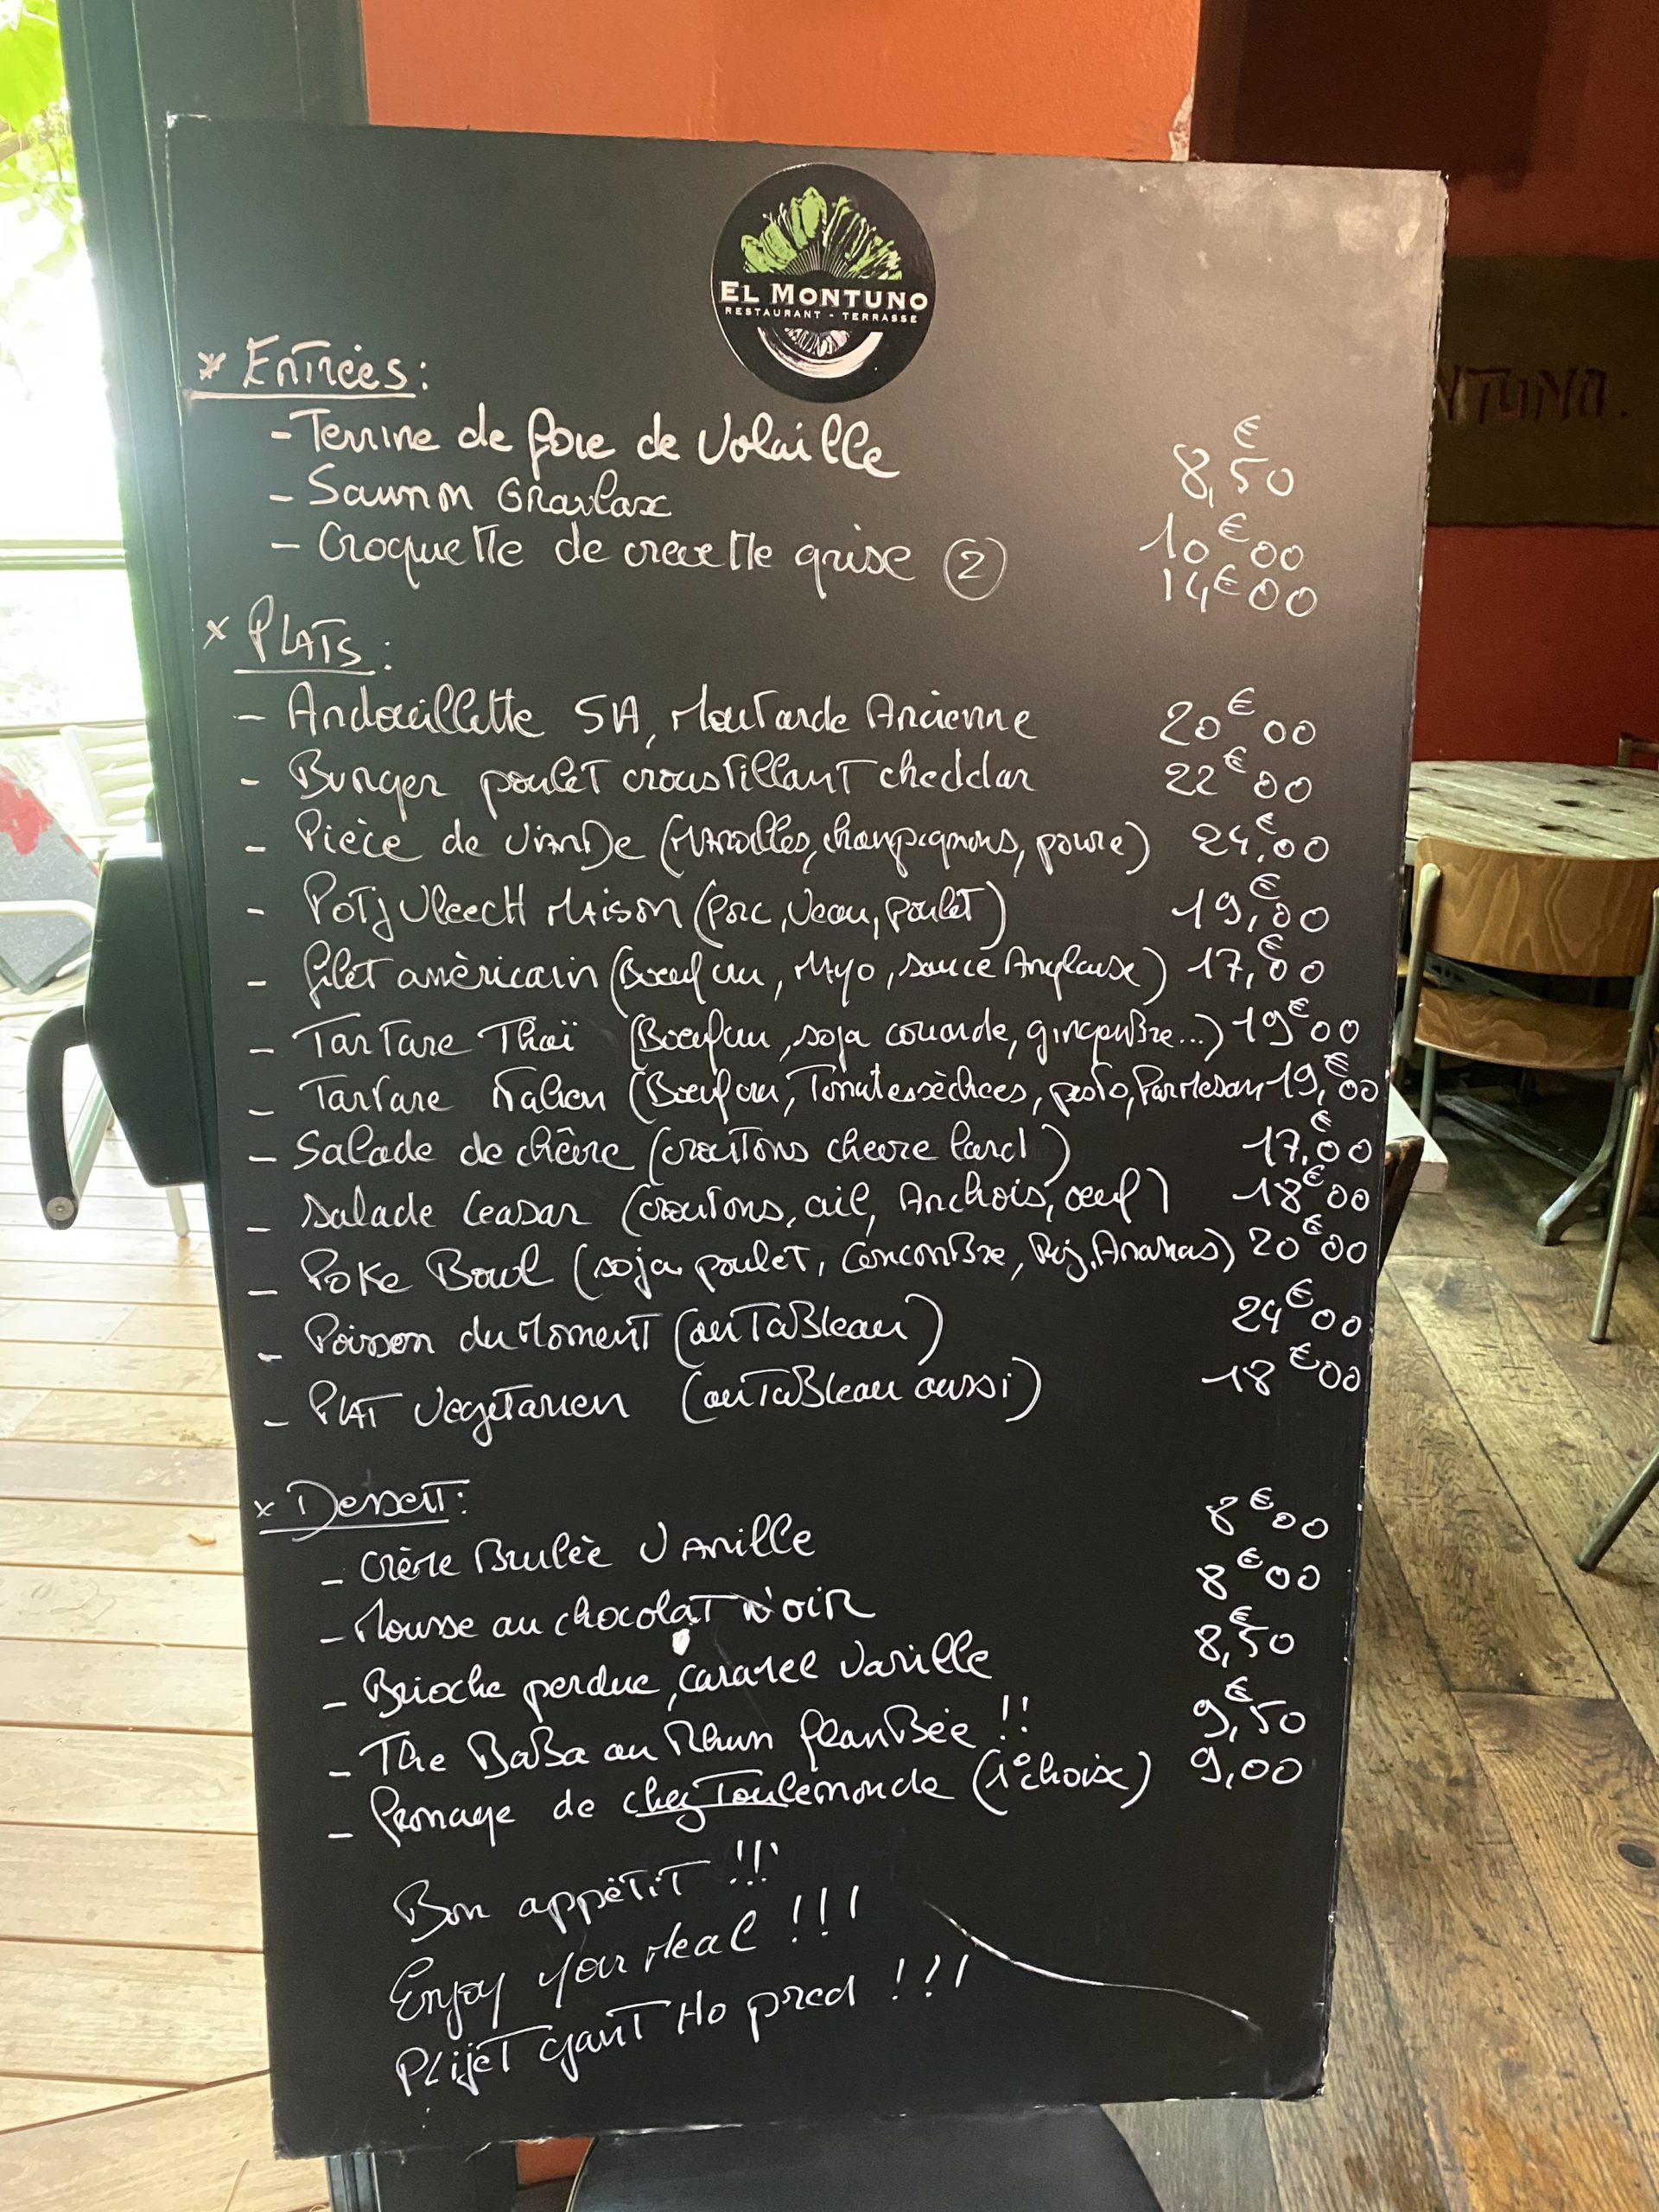 EL MONTUNO
RESTAURANT - TERRASSE
NTUNO.
* Entrées:
- Terrine de foie de Volaille 8,€50
- Saumon Gravlax 10€00
- Croquette de crevette grise (2) 14€00
x PLATS:
- Andouillette 5A, Moutarde Ancienne 20€00
- Burger poulet croustillant cheddar 22€00
- Pièce de viande (Maroilles, champignons, poivre) 24,€00
- Potjvleech Maison (porc, veau, poulet) 19,€00
- filet américain (Boeuf cru, Mayo, sauce Anglaise) 17,€00
- Tartare Thaï (Boeuf cru, soja coriande, gingembre...) 19€00
- Tartare Italien (Boeuf cru, Tomates sèchées, pesto, Parmesan 19,€00
- Salade de chêvre (croutons chevre lard) 17,€00
- Salade Ceasar (croutons, ail, Anchois, oeuf) 18€00
- Poke Bowl (soja poulet, Concombre, Riz, Ananas) 20€00
- Poisson du Moment (au Tableau) 24€00
- PLAT Vegetarien (au Tableau aussi) 18€00
x Dessert:
- Crème Brulée Vanille 8€00
- Mousse au chocolat Noir 8€00
- Brioche perdue, Caramel Vanille 8,€50
- The BaBa au Rhum flambée !! 9,€50
- Fromage de chez Toulemonde (1°choix) 9,00
Bon appétit !!!
Enjoy your meal !!!
Plijet gant Ho pred !!!